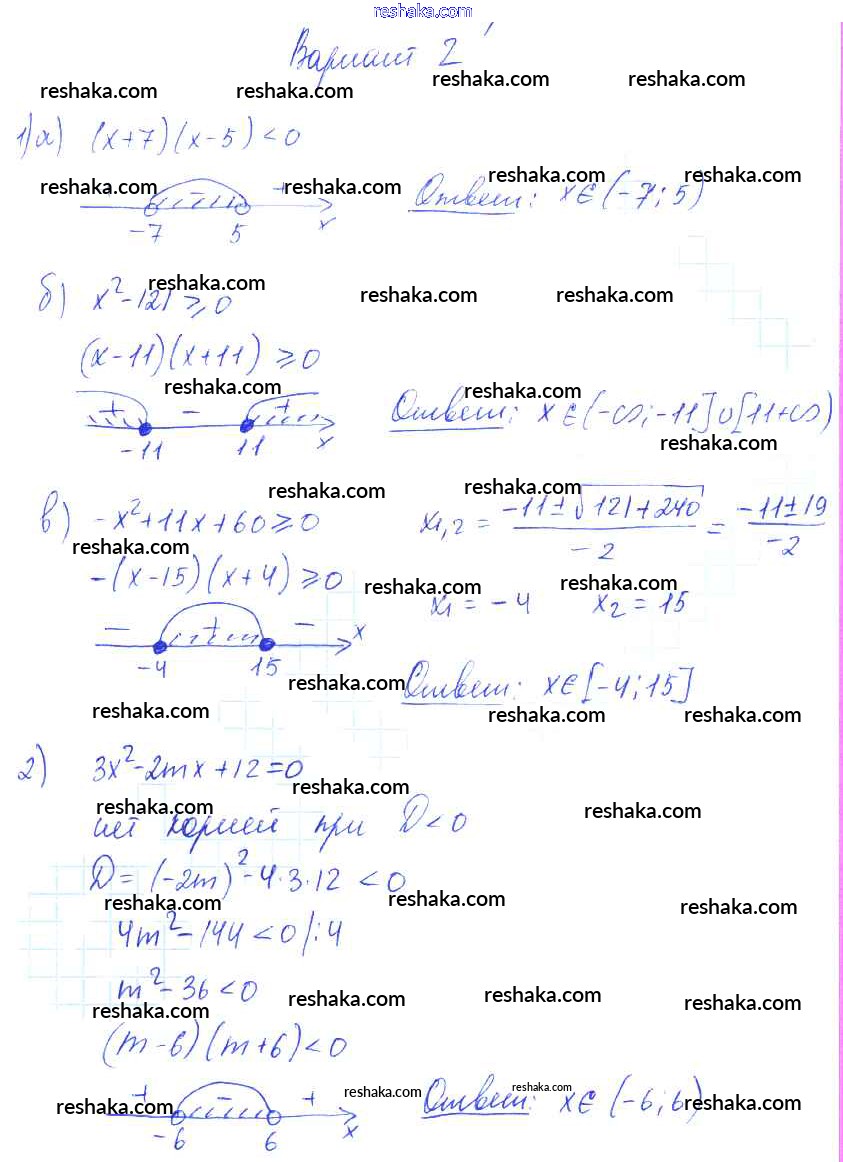 reshaka.com
Вариант 2
reshaka.com reshaka.com reshaka.com reshaka.com
1) а) (x+7)(x-5)<0
reshaka.com + reshaka.com reshaka.com reshaka.com
- x Ответ: x∈(-7;5)
-7 5
б) x²-121≥0 reshaka.com reshaka.com reshaka.com reshaka.com
(x-11)(x+11)≥0
reshaka.com reshaka.com
+ - + x Ответ: x∈(-∞;-11]∪[11+∞)
-11 11 reshaka.com
reshaka.com reshaka.com
в) -x²+11x+60≥0 x1,2 = -11±√121+240 / -2 = -11±19 / -2
reshaka.com
-(x-15)(x+4)≥0 reshaka.com reshaka.com
x1 = -4 x2 = 15
- + - x
-4 15
reshaka.com Ответ: x∈[-4;15]
reshaka.com reshaka.com reshaka.com
2) 3x²-2mx+12=0
reshaka.com reshaka.com
нет корней при D<0
D=(-2m)²-4·3·12<0
reshaka.com reshaka.com reshaka.com
4m²-144<0 /:4
m²-36<0
reshaka.com reshaka.com reshaka.com reshaka.com
(m-6)(m+6)<0
+ - + x reshaka.com reshaka.com
reshaka.com Ответ: x∈(-6;6) reshaka.com
-6 6